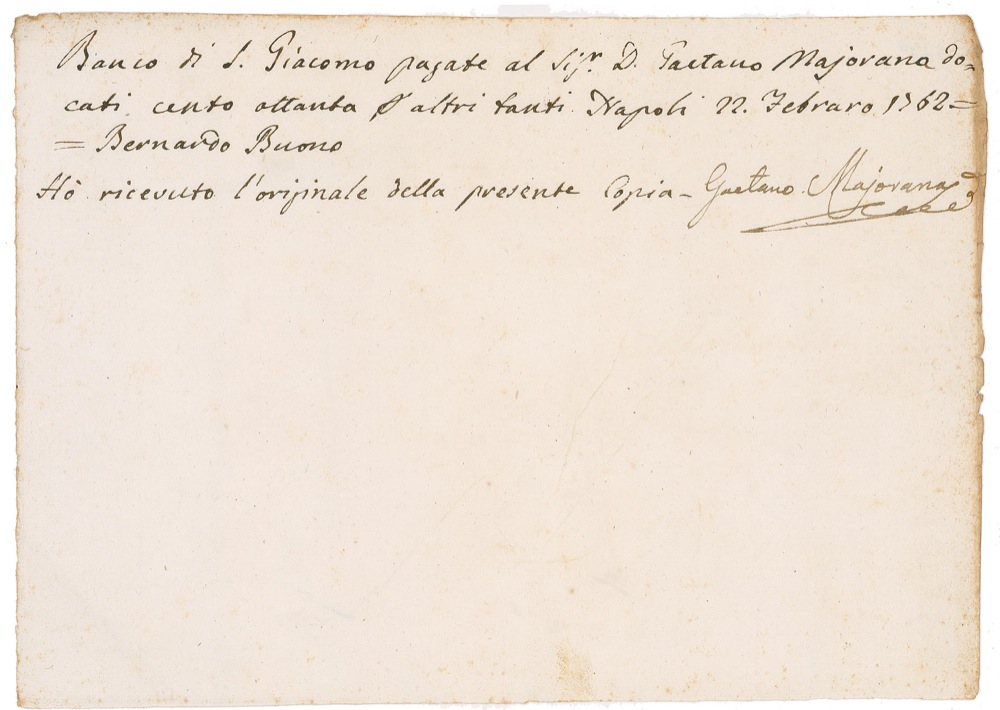 Banco di S. Giacomo pagate al Sig.r D. Gaetano Majorana do-
cati cento ottanta p altri tanti Napoli 22. Febraro 1762=
= Bernardo Buono
Hò ricevuto l'originale della presente Copia - Gaetano Majorana